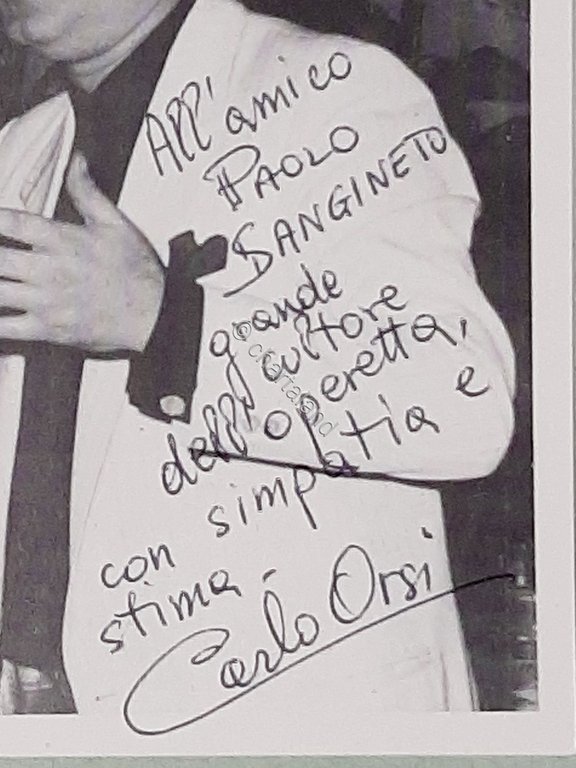 All' amico
PAOLO
SANGINETO
grande
cultore
dell' operetta,
con simpatia e
stima.
Carlo Orsi
© cartaland